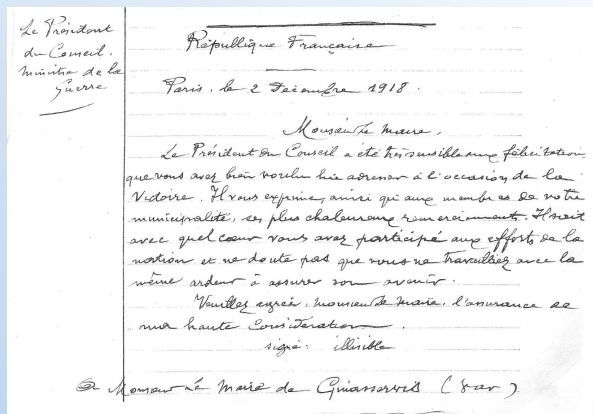 Le Président
du Conseil.
ministre de la
Guerre
République Française
Paris, le 2 Décembre 1918.
Monsieur le Maire,
Le Président du Conseil a été très sensible aux félicitations
que vous avez bien voulu lui adresser à l'occasion de la
Victoire. Il vous exprime, ainsi qu'aux membres de votre
municipalité, ses plus chaleureux remerciements. Il sait
avec quel cœur vous avez participé aux efforts de la
nation et ne doute pas que vous ne travailliez avec la
même ardeur à assurer son avenir.
Veuillez agréer, monsieur le maire, l'assurance de
ma haute Considération.
signé: illisible
A Monsieur le Maire de Ginasservis (Var)